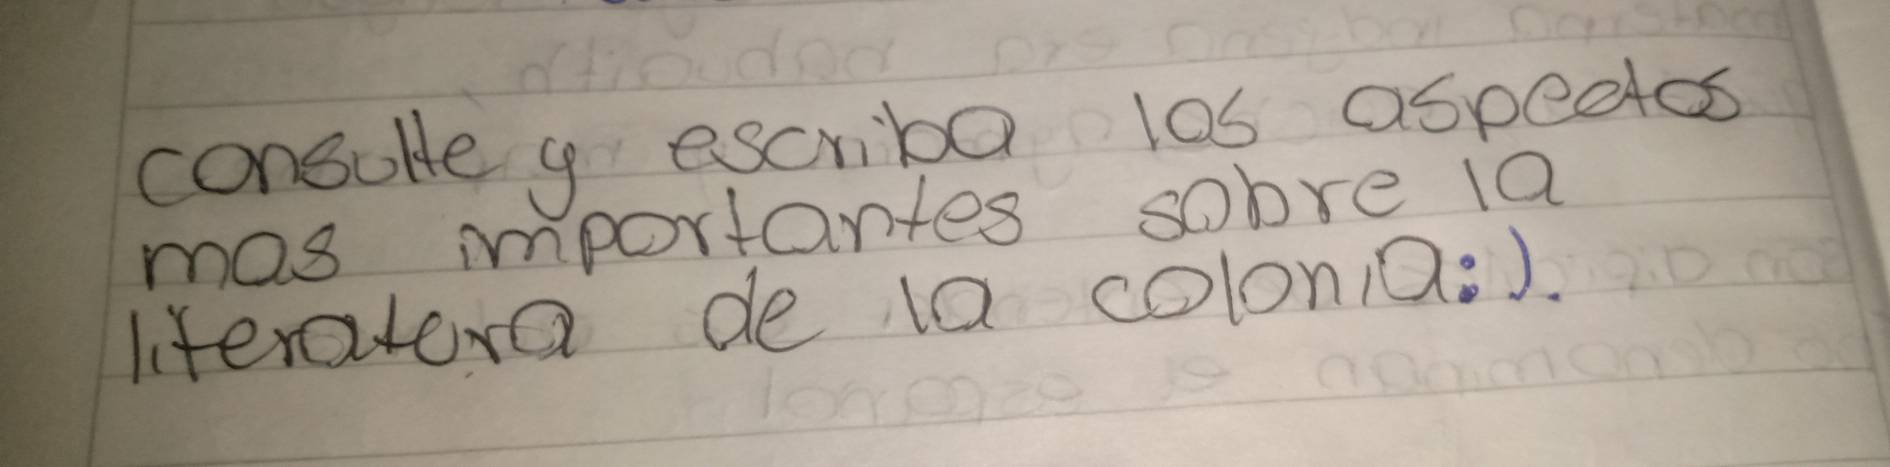 consulte y escriba los aspectos
mas importantes sobre la
literatura de la colonia:).